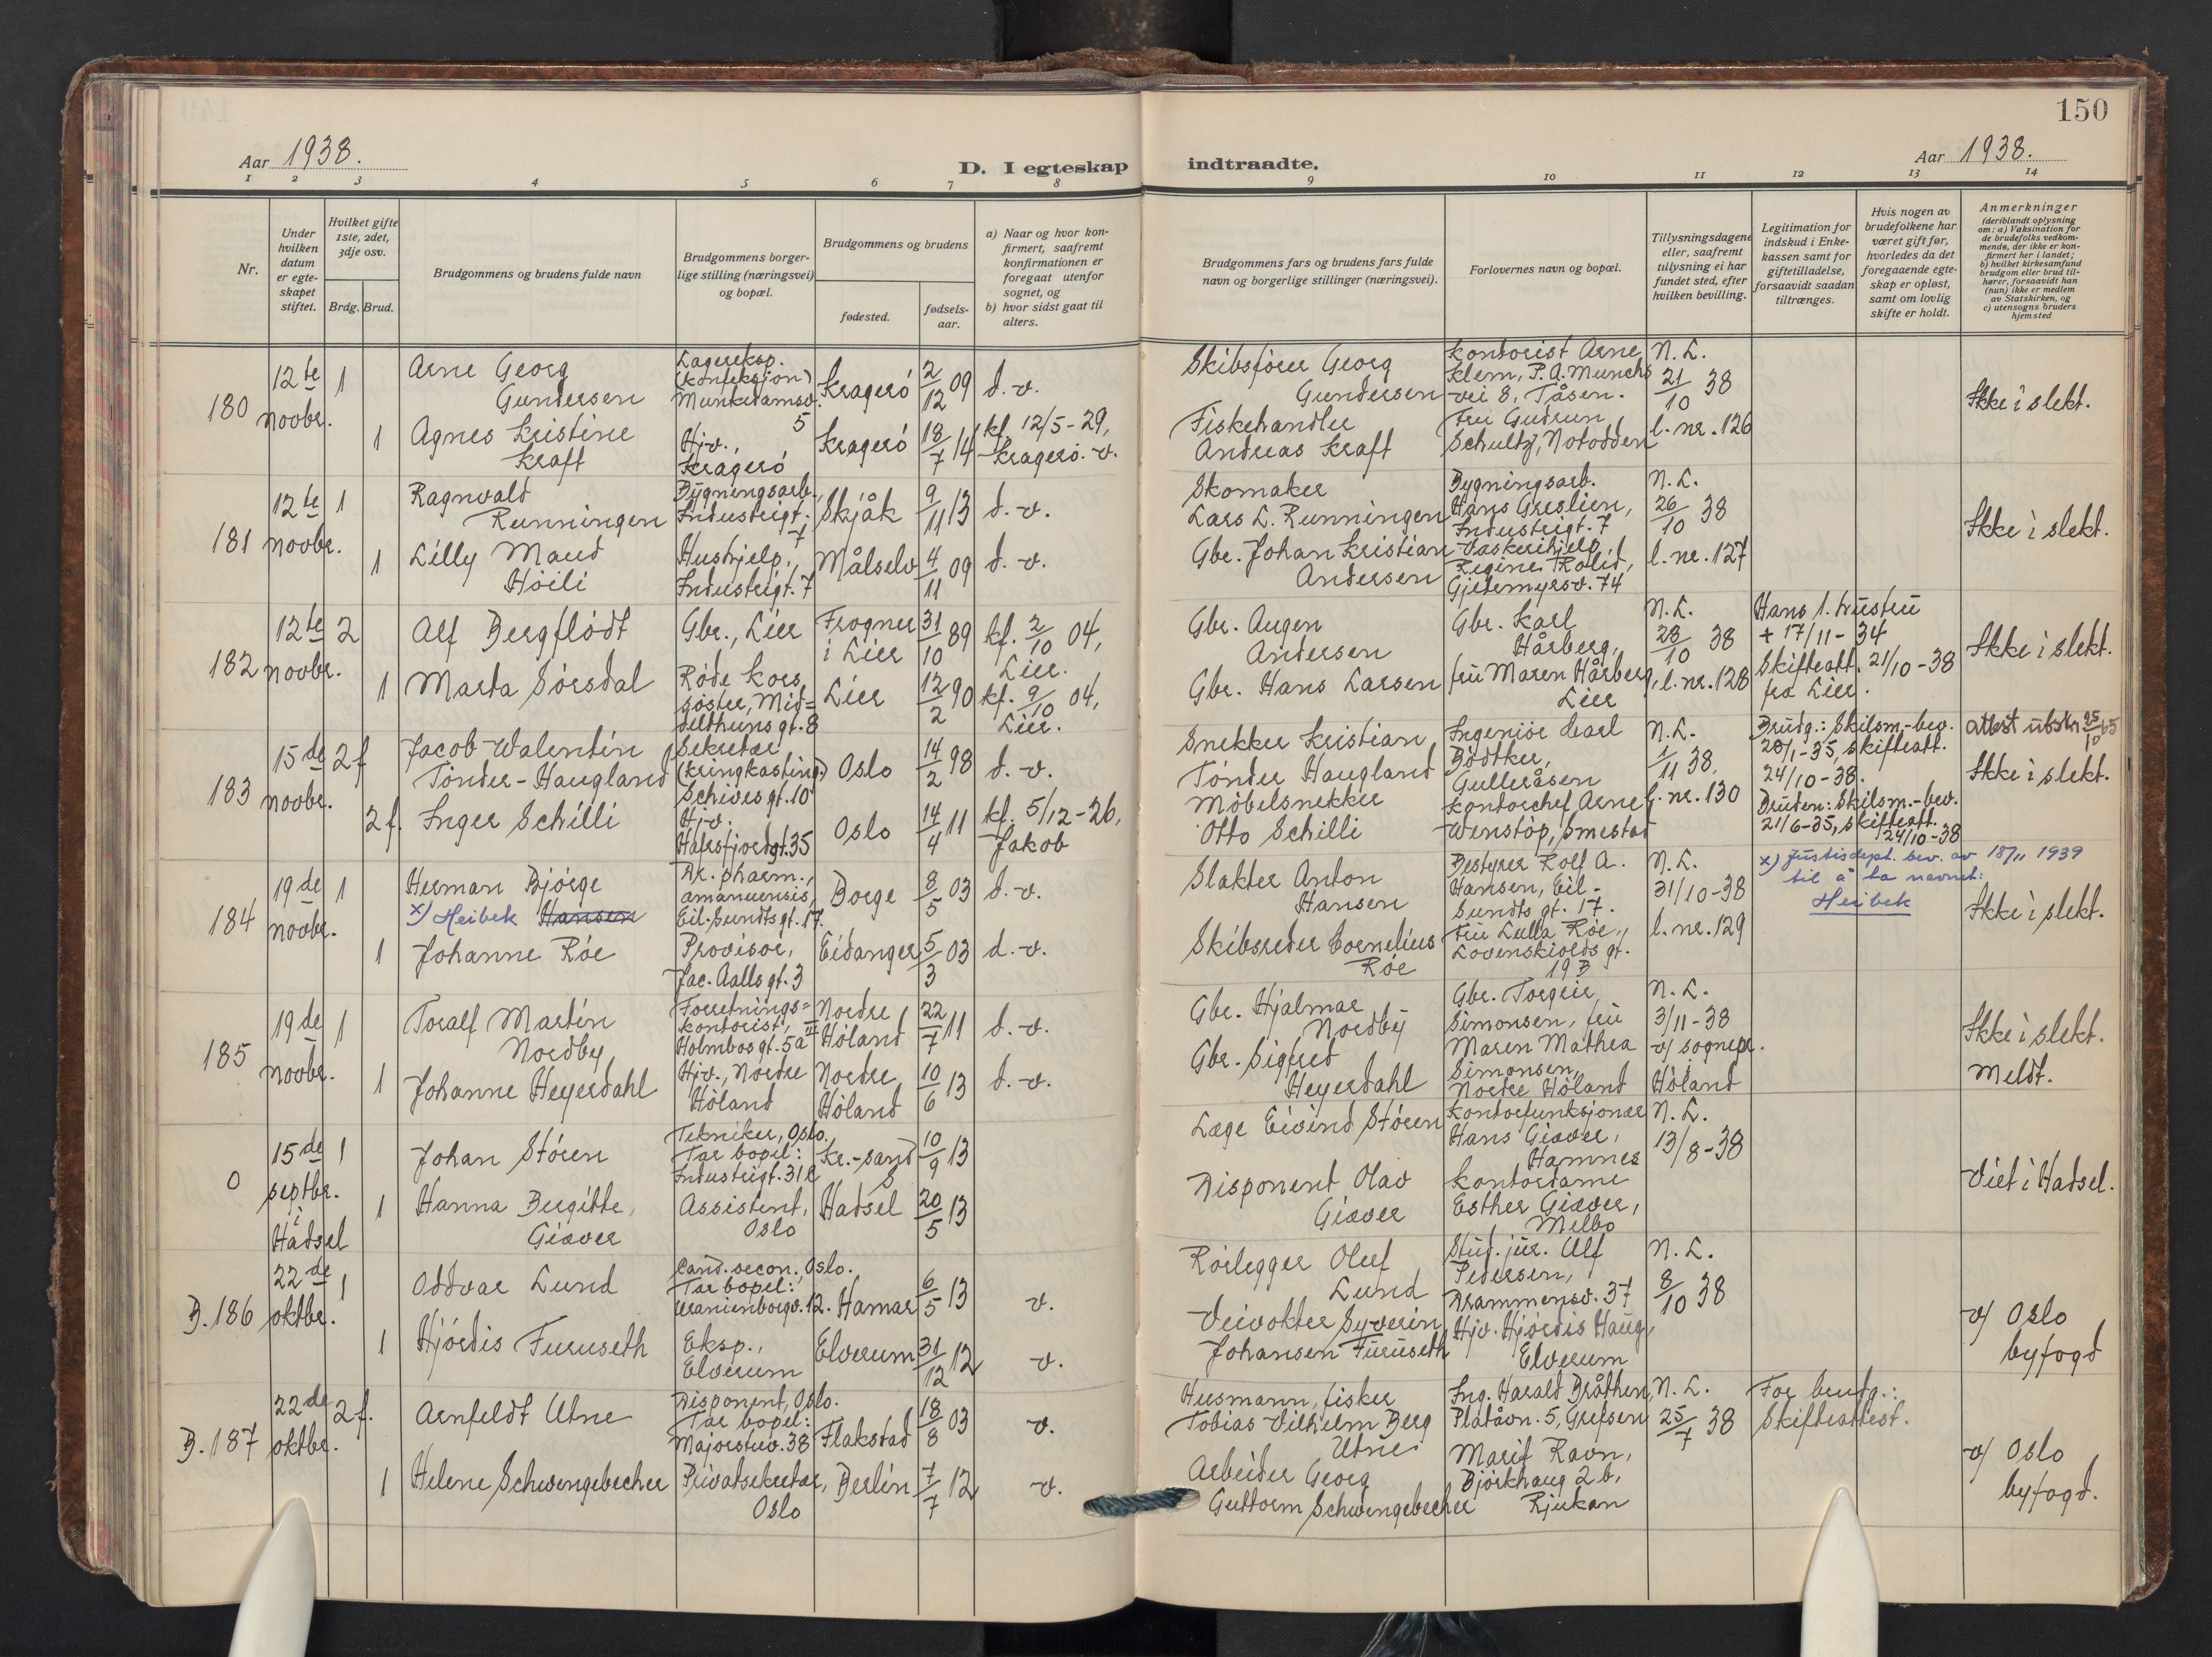 150
Aar 1938.
D. I egteskap indtraadte.
Aar 1938.
1 2 3 4 5 6 7 8 9 10 11 12 13 14
Nr.
Under hvilken datum er egteskapet stiftet.
Hvilket gifte 1ste, 2det, 3dje osv.
Brdg. Brud.
Brudgommens og brudens fulde navn
Brudgommens borgerlige stilling (næringsvei) og bopæl.
Brudgommens og brudens
fødested.
fødselsaar.
a) Naar og hvor konfirmert, saafremt konfirmationen er foregaat utenfor sognet, og
b) hvor sidst gaat til alters.
Brudgommens fars og brudens fars fulde navn og borgerlige stillinger (næringsvei).
Forlovernes navn og bopæl.
Tillysningsdagene eller, saafremt tillysning ei har fundet sted, efter hvilken bevilling.
Legitimation for indskud i Enkekassen samt for giftetilladelse, forsaavidt saadan tiltrænges.
Hvis nogen av brudefolkene har været gift før, hvorledes da det foregaaende egteskap er opløst, samt om lovlig skifte er holdt.
Anmerkninger
(deriblandt oplysning om: a) Vaksination for de brudefolks vedkommende, der ikke er konfirmert her i landet;
b) hvilket kirkesamfund brudgom eller brud tilhører, forsaavidt han (hun) ikke er medlem av Statskirken, og
c) utensogns bruders hjemsted
180 12te novbr.
1 Arne Georg Gundersen
Lagereksp. (konfeksjon) Munkedamsv. 5
Kragerö 2/12 09 d. v.
Skibsförer Georg Gundersen
Kontorist Arne Klem, P. A. Munchs vei 8, Tåsen.
N. L. 21/10 38
Ikke i slekt.
1 Agnes Kristine Kraft
Hjv., Kragerö
Kragerö 18/7 14 kf. 12/5-29, Kragerö. v.
Fiskehandler Andreas Kraft
Fru Gudrun Schultz, Notodden
l. nr. 126
181 12te novbr.
1 Ragnvald Runningen
Bygningsarb., Industrigt. 7
Skjåk 9/11 13 d. v.
Skomaker Lars L. Runningen
Bygningsarb. Hans Greslien, Industrigt. 7
N. L. 26/10 38
Ikke i slekt.
1 Lilly Maud Höili
Hushjelp, Industrigt. 7
Målselv 4/11 09 d. v.
Gbr. Johan Kristian Andersen
Vaskerihjelp Regine Rolid, Gjetemyrsv. 74
l. nr. 127
182 12te novbr.
2 Alf Bergflödt
Gbr., Lier
Frogner i Lier 31/10 89 kf. 2/10 04, Lier.
Gbr. Augen Andersen
Gbr. Karl Hårberg,
N. L. 28/10 38
Hans 1. hustru + 17/11-34
Skifteatt. 21/10-38 fra Lier.
Ikke i slekt.
1 Marta Sörsdal
Röde Kors söster, Middelthuns gt. 8
Lier 12/2 90 kf. 9/10 04, Lier.
Gbr. Hans Larsen
fru Maren Hårberg, Lier
l. nr. 128
183 15de novbr.
2 f Jacob Walentin Tönder-Haugland
Sekretær (kringkasting) Schives gt. 10
Oslo 14/2 98 d. v.
Snekker Kristian Tönder Haugland
Ingeniör Carl Bödtker, Gulleråsen
N. L. 1/11 38.
Brudg.: Skilsm.-bev. 28/1-35, skifteatt. 24/10-38.
Attest utskr 25/10 65
Ikke i slekt.
2 f. Inger Schilli
Hjv. Hafrsfjordgt. 35
Oslo 14/4 11 kf. 5/12-26, Jakob
Möbelsnekker Otto Schilli
Kontorchef Arne Wenstöp, Smestad
l. nr. 130
Bruden: Skilsm.-bev. 21/6-35, skifteatt. 24/10-38
184 19de novbr.
1 Herman Bjørge
x) Heibek Hansen
Dr. pharm., amanuensis, Eil. Sundts gt. 17.
Borge 8/5 03 d. v.
Slakter Anton Hansen
Bestyrer Rolf A. Hansen, Eil. Sundts gt. 17.
N. L. 31/10-38
x) Justisdept. bev. av 18/11 1939 til å ta navnet: Heibek
Ikke i slekt.
1 Johanne Röe
Provisor, Jac. Aalls gt. 3
Eidanger 5/3 03 d. v.
Skibsreder Cornelius Röe
Fru Lulla Röe, Lovenskiolds gt. 19 B
l. nr. 129
185 19de novbr.
1 Toralf Martin Nordby
Forretningskontorist, Holmbos gt. 5a III
Nordre Höland 22/7 11 d. v.
Gbr. Hjalmar Nordby
Gbr. Torgeir Simonsen, fru Maren Mathea Simonsen, Nordre Höland
N. L. 3/11-38 v/ sognepr. Höland
Ikke i slekt.
Meldt.
1 Johanne Heyerdahl
Hjv., Nordre Höland
Nordre Höland 10/6 13 d. v.
Gbr. Sigfred Heyerdahl
0 15de septbr. i Hadsel
1 Johan Stören
Tekniker, Oslo. Tar bopel: Industrigt. 31 c
Kr.-sand S 10/9 13
Læge Eivind Stören
Kontorfunksjonær Hans Giæver, Hamnes
N. L. 13/8-38
Viet i Hadsel.
1 Hanna Birgitte, Giæver
Assistent, Oslo
Hadsel 20/5 13
Disponent Olav Giæver
Kontordame Esther Giæver, Melbo
B. 186 22de oktbr.
1 Oddvar Lund
Cand. oecon., Oslo. Tar bopel: Uranienborgv. 12.
Hamar 6/5 13 v.
Rörlegger Oluf Lund
Stud. jur. Ulf Pedersen, Drammensv. 37
N. L. 8/10 38
v/ Oslo byfogd
1 Hjördis Furuseth
Eksp., Elverum
Elverum 31/12 12 v.
Veivokter Syverin Johansen Furuseth
Hjv. Hjördis Haug, Elverum
B. 187 22de oktbr.
2 f. Arnfeldt Utne
Disponent, Oslo. Tar bopel: Majorstuv. 38
Flakstad 18/8 03 v.
Husmann, fisker Tobias Vilhelm Berg Utne
Ing. Harald Bråthen, Platåvn. 5, Grefsen
N. L. 25/7 38
For brudg.: Skifteattest.
v/ Oslo byfogd.
1 Helene Schwengebecher
Privatsekretær, Oslo
Berlin 7/7 12 v.
Arbeider Georg Guttorm Schwengebecher
Marit Ravn, Björkhaug 2 b, Rjukan